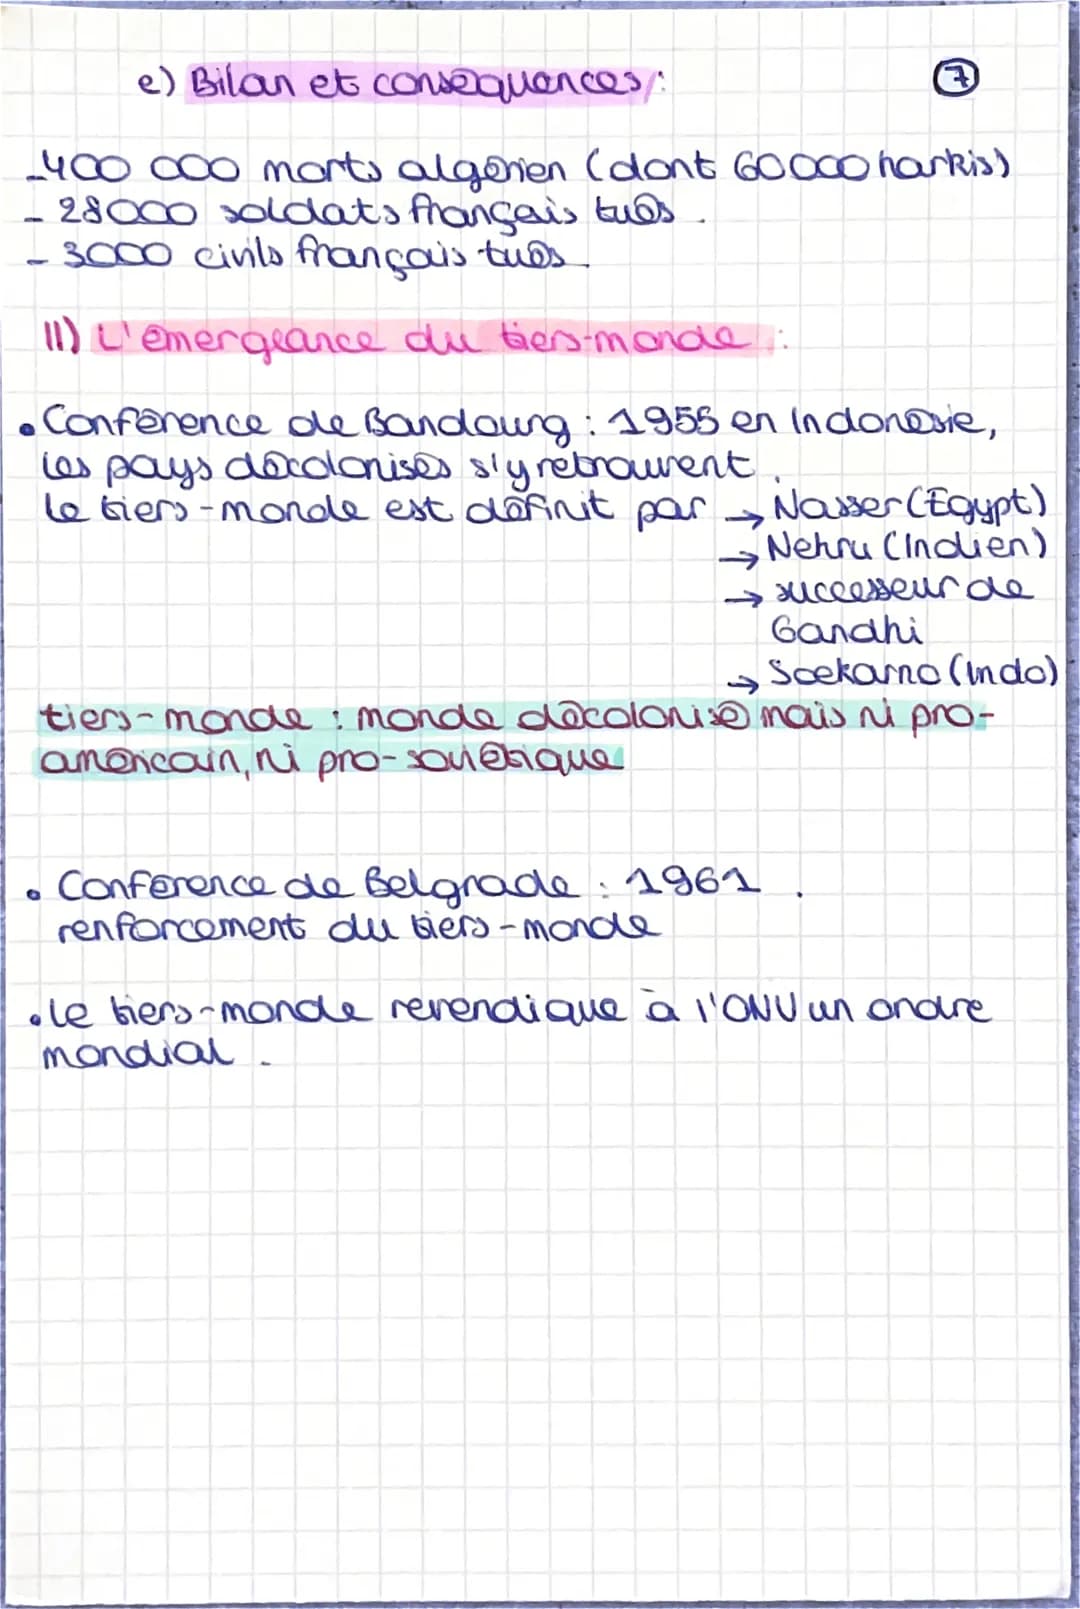 e) Bilan et conséquences :
7
- 400 000 morts algérien (dont 60 000 harkis)
- 28000 soldats français tués.
- 3000 civils français tués.
II) L'émergeance du tiers-monde :
• Conférence de Bandoung : 1955 en Indonésie,
les pays décolonisés s'y retrouvent.
Le tiers-monde est définit par → Nasser (Egypt)
→ Nehru (Indien)
→ successeur de
Gandhi
→ Soekarno (Indo)
tiers-monde : monde décolonisé mais ni pro-
américain, ni pro-soviétique
• Conférence de Belgrade : 1961.
renforcement du tiers-monde
• Le tiers-monde revendique à l'ONU un ordre
mondial.